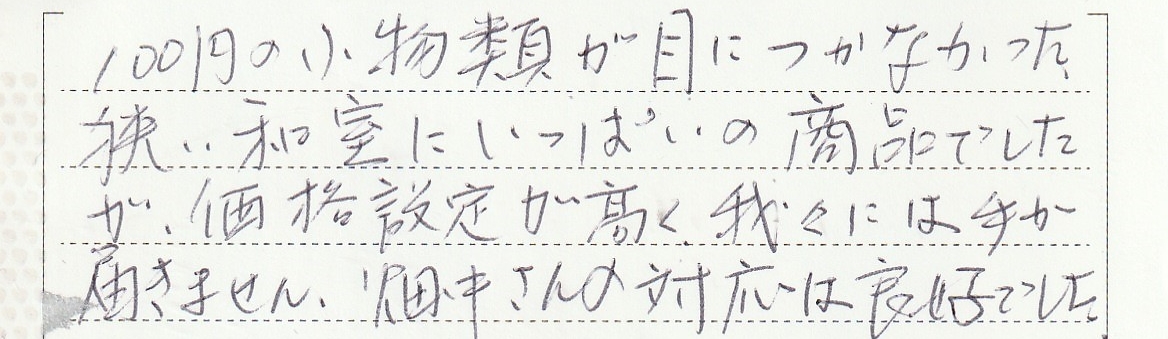 100円の小物類が目につかなかった、
狭い和室にいっぱいの商品でした
が、価格設定が高く、我々には手が
届きません、畑中さんの対応は良好でした